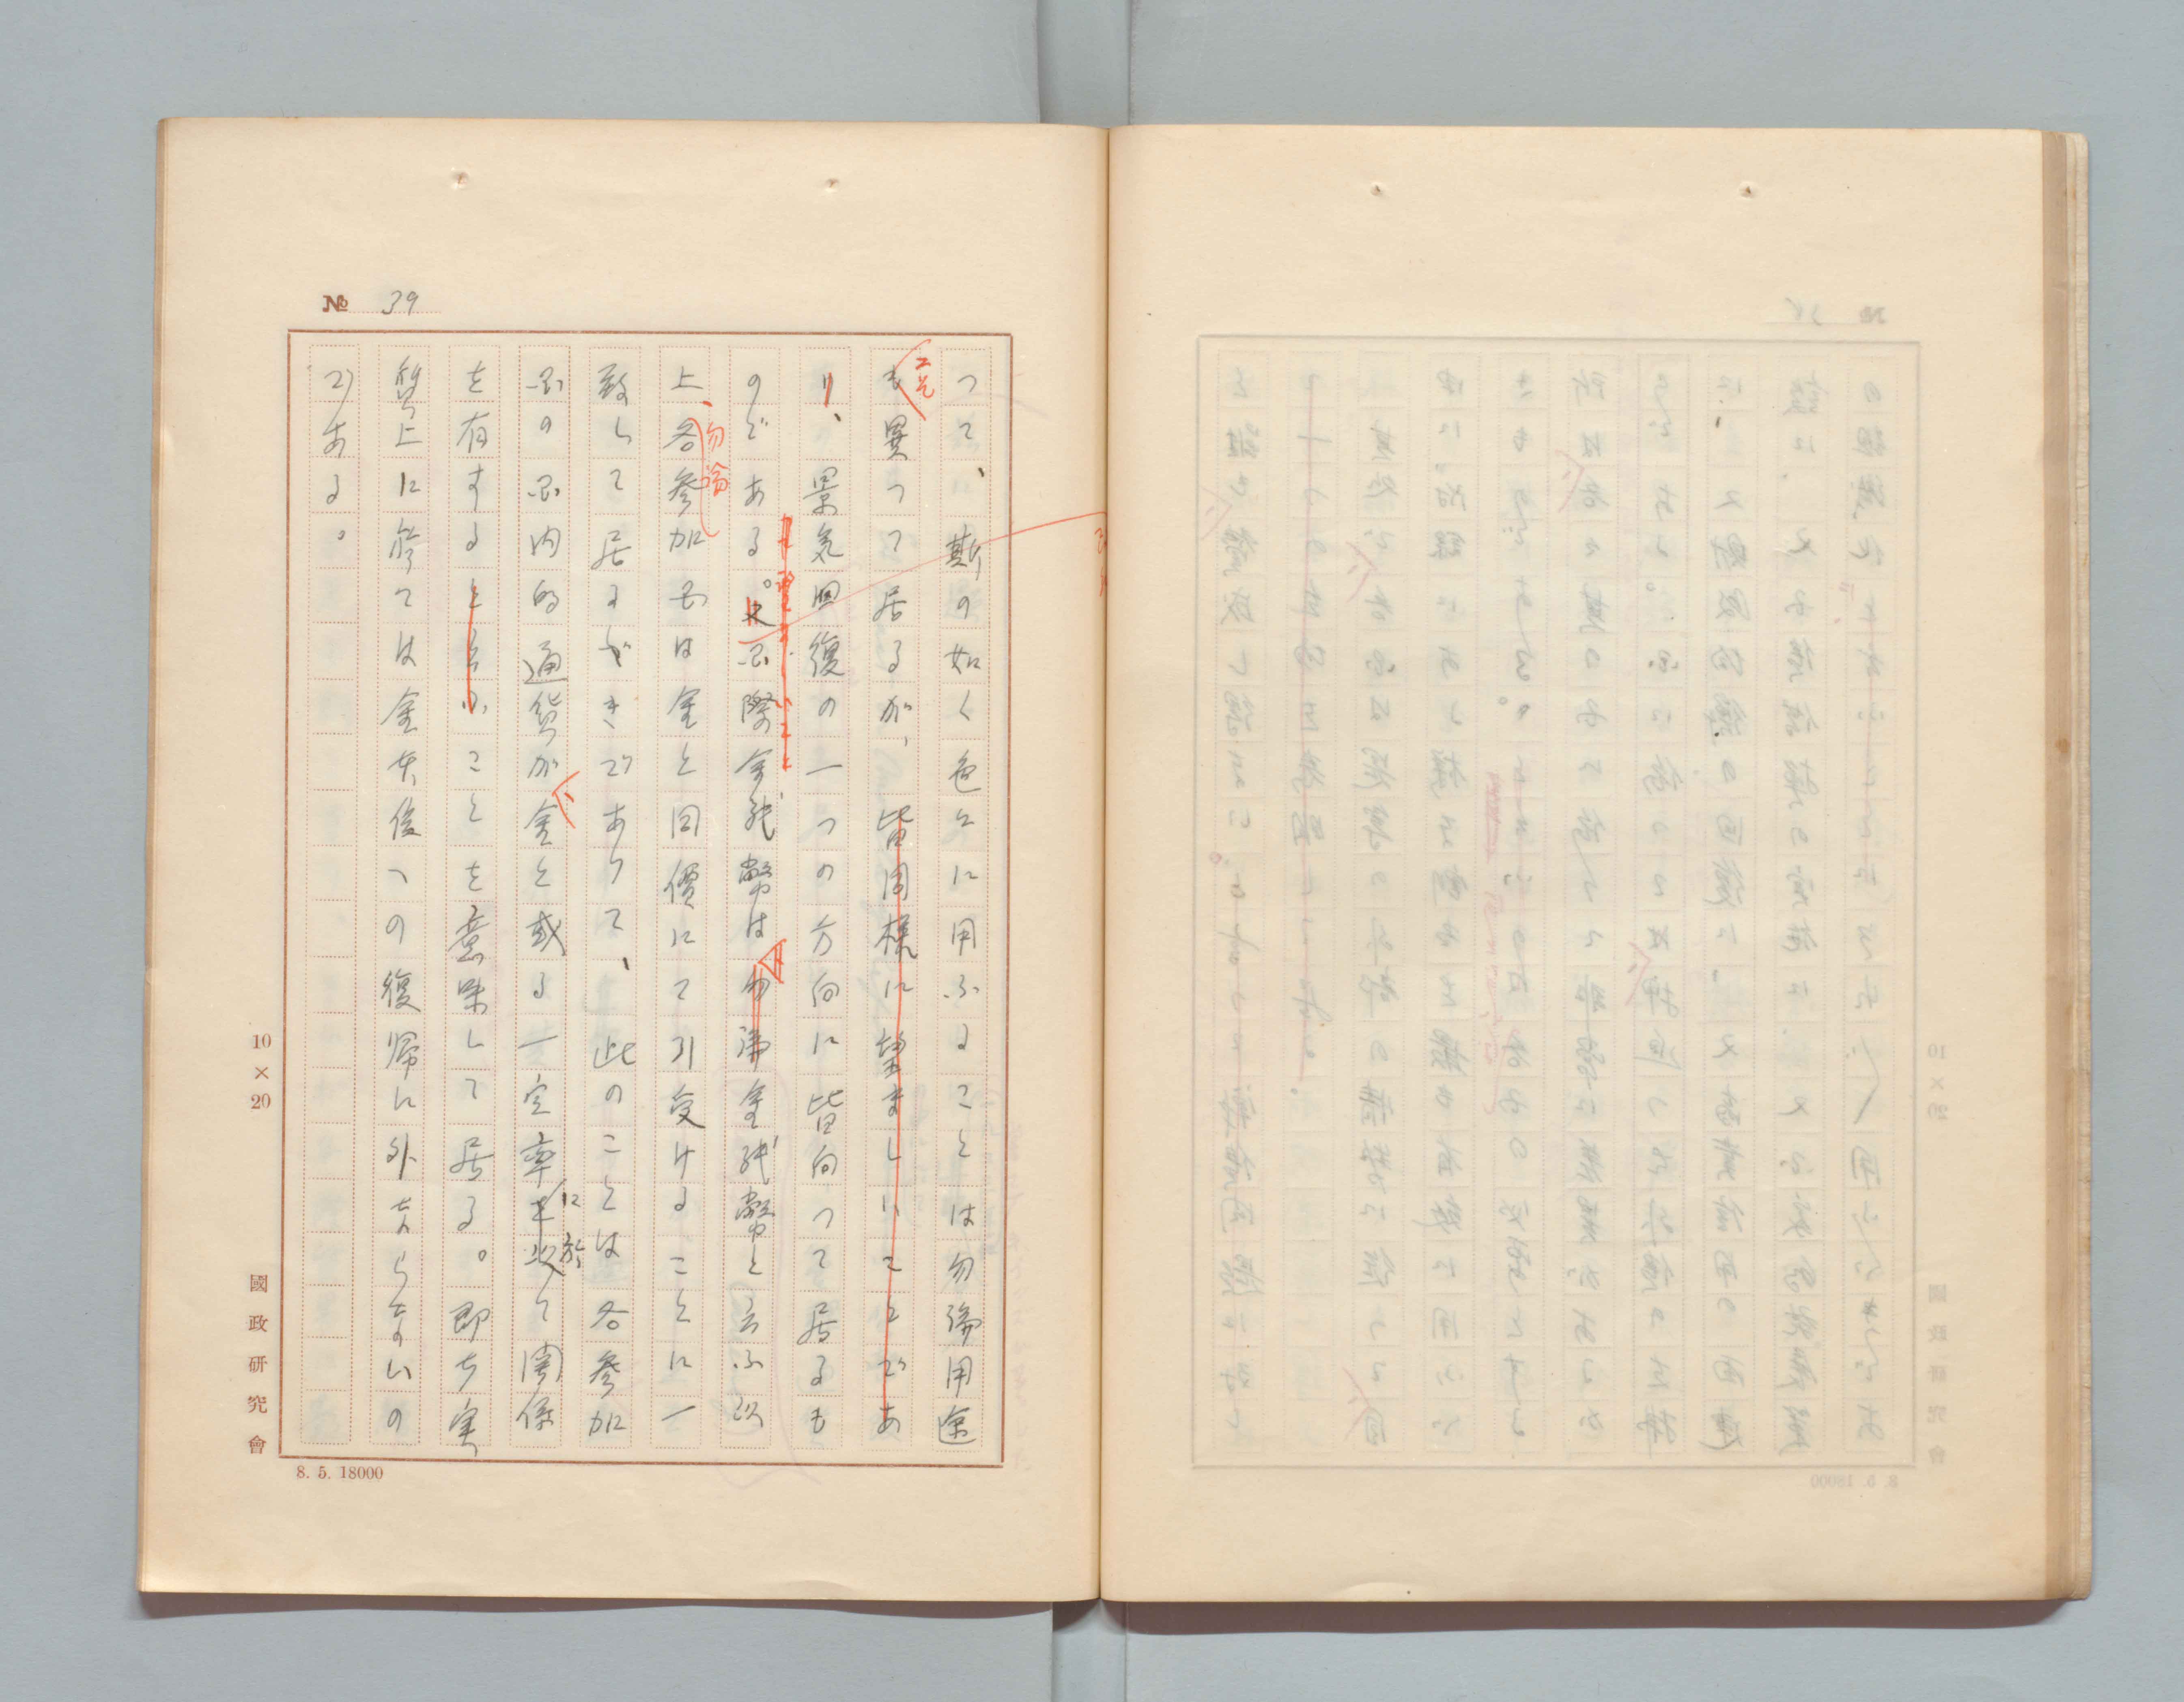 № 39
つて、斯の如く色々に用ふることは勿論用途
も異つて居るが、皆同様に望ましいことであ
り、景気回復の一つの方向に皆向つて居るも
のである。又国際金紙幣は勿論金紙幣と云ふ以
上、各参加国は金と同價にて引受けることに一
勿論
致して居るべきでありて、此のことは各参加
国の国内的通貨が金と或る一定率を以て関係
に於
を有すると云ふことを意味して居る。即ち実
質上に於ては金本位への復帰に外ならないの
である。
10×20
國政研究會
8. 5. 18000